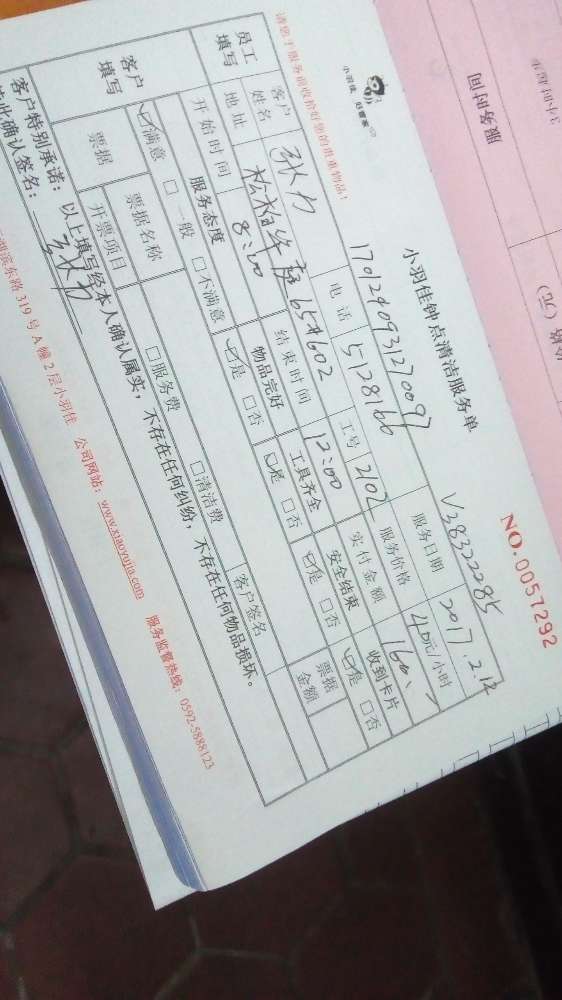 3小时起步
服务时间
价格(元)
NO.0057292
小羽佳 好管家
小羽佳钟点清洁服务单
V38322285
1701240931270097
请您于服务前收拾好您的贵重物品!
员工填写
客户姓名 张力 电话 5128166 工号 2102 服务日期 2017.2.12
地址 松柏华庭65#602 服务价格 40元/小时
开始时间 8:00 结束时间 12:00 实付金额 160
客户填写
服务态度 物品完好 工具齐全 安全结束 收到卡片
☑满意 □一般 □不满意 ☑是 □否 ☑是 □否 ☑是 □否 ☑是 □否
票据 票据名称 客户签名 票据金额
开票项目 □服务费 □清洁费
客户特别承诺:以上填写经本人确认属实,不存在任何纠纷,不存在任何物品损坏。
此确认签名: 张力
滨东路319号A幢2层小羽佳 公司网站:www.xiaoyujia.com 服务监督热线:0592-5888123